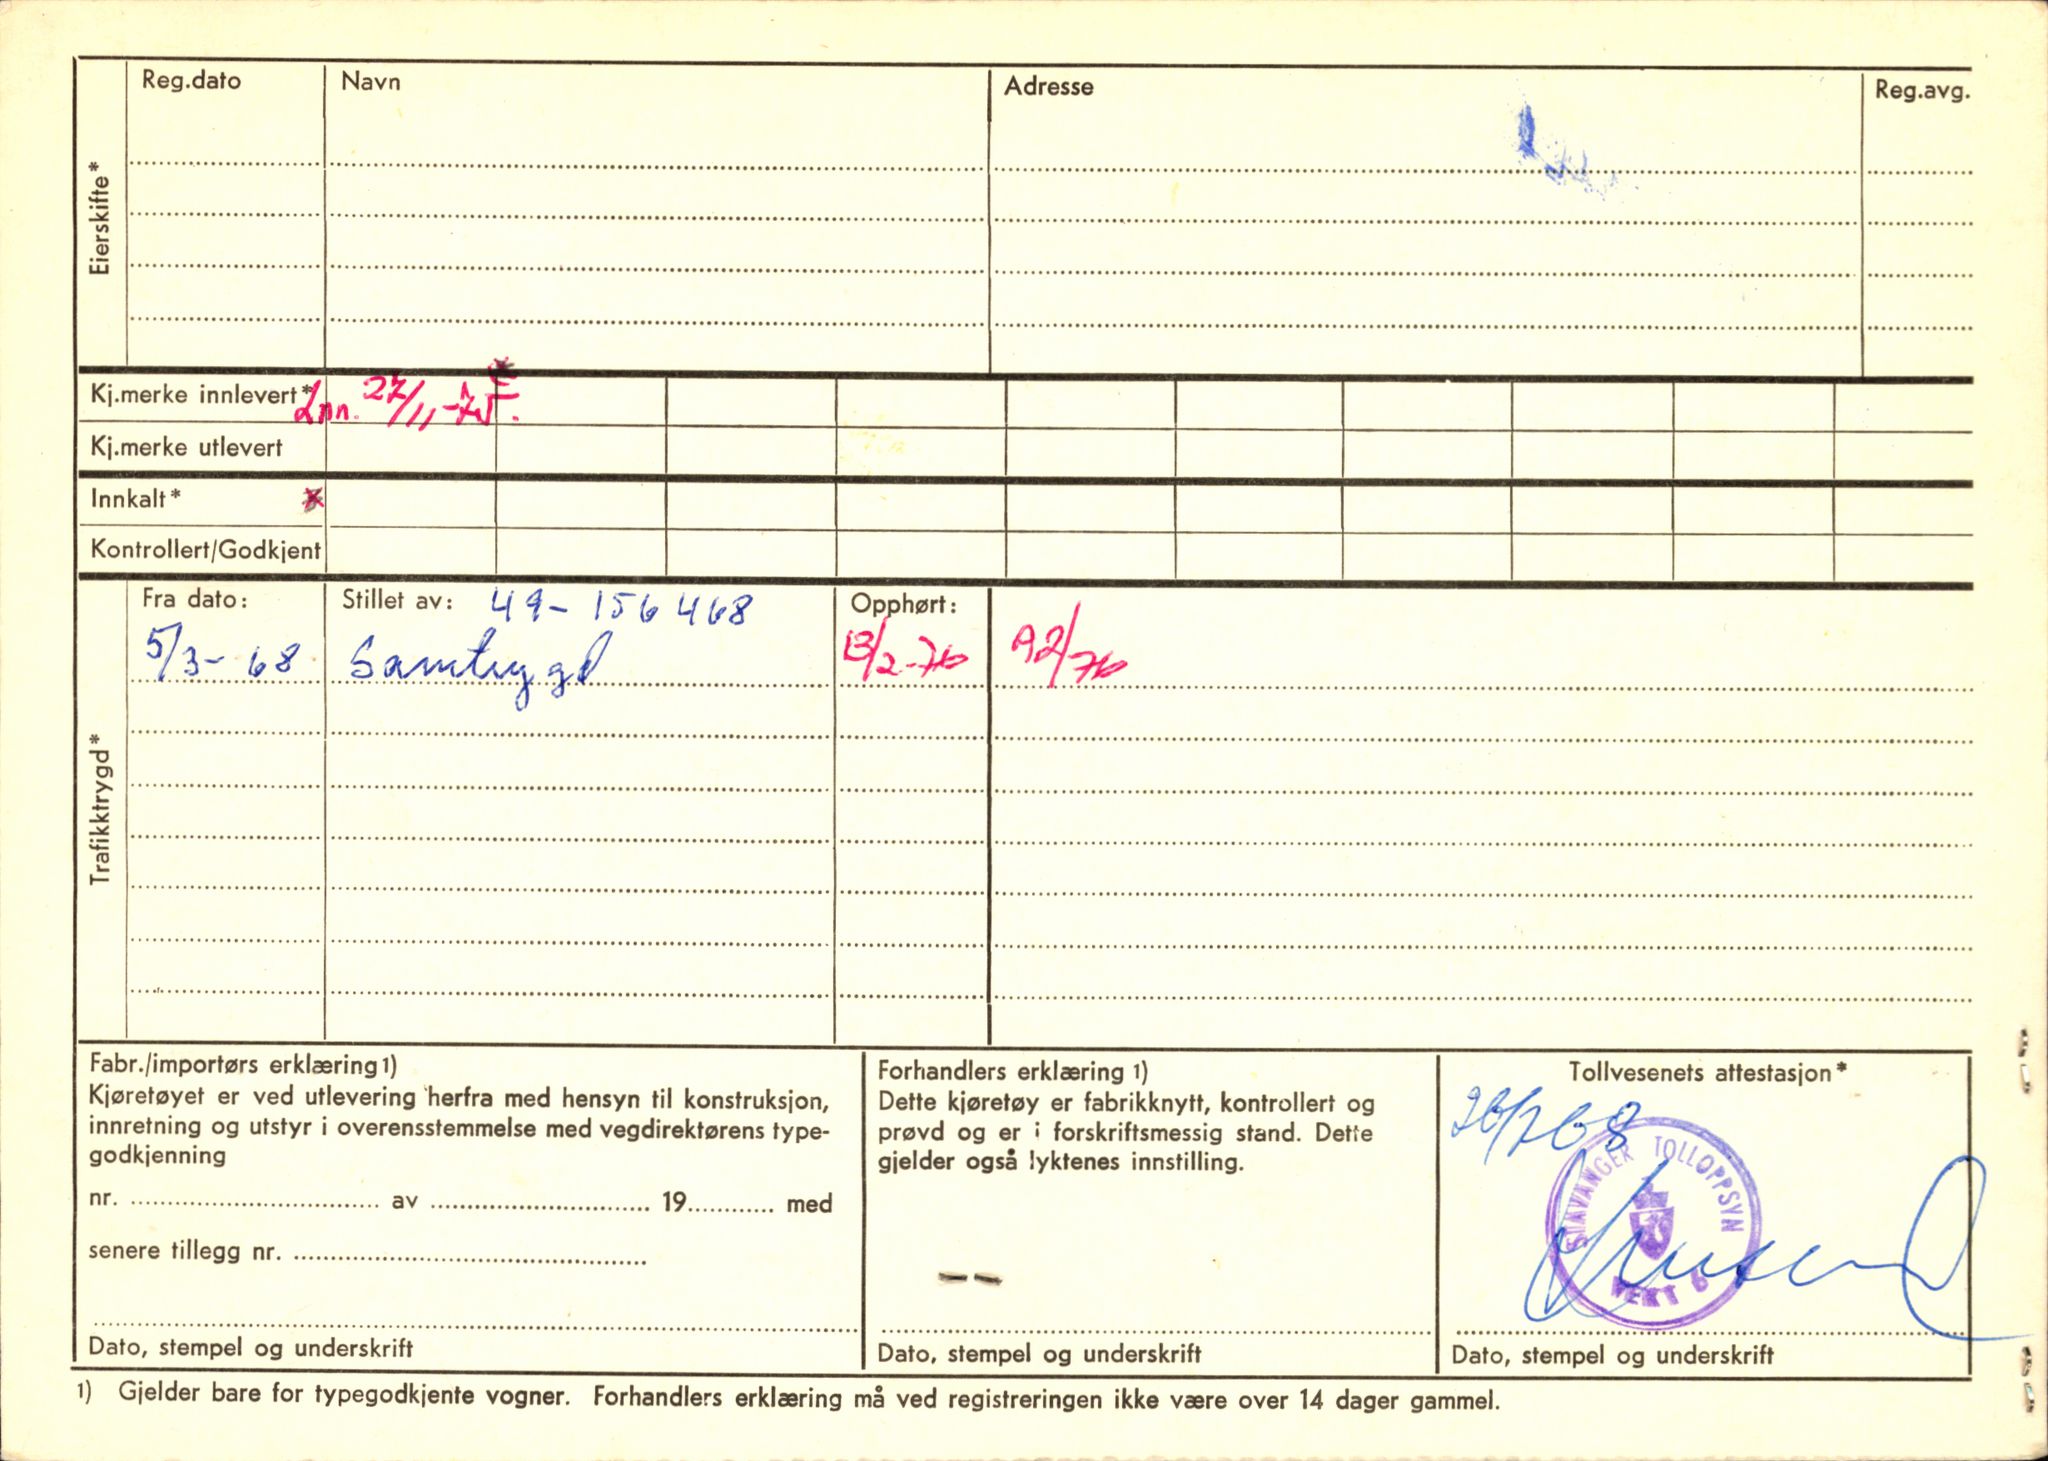 Reg.dato Navn Adresse Reg.avg.
Eierskifte*
Kj.merke innlevert* Inn. 27/11-75.
Kj.merke utlevert
Innkalt* x
Kontrollert/Godkjent
Trafikktrygd*
Fra dato: Stillet av: 49-156468 Opphørt:
5/3-68 Samtrygd 13/2-76 A2/76
Fabr./importørs erklæring 1)
Kjøretøyet er ved utlevering herfra med hensyn til konstruksjon,
innretning og utstyr i overensstemmelse med vegdirektørens type-
godkjenning
nr. av 19 med
senere tillegg nr.
Dato, stempel og underskrift
Forhandlers erklæring 1)
Dette kjøretøy er fabrikknytt, kontrollert og
prøvd og er i forskriftsmessig stand. Dette
gjelder også lyktenes innstilling.
Dato, stempel og underskrift
Tollvesenets attestasjon*
26/2 68
STAVANGER TOLLOPPSYN
VEKT 6
Dato, stempel og underskrift
1) Gjelder bare for typegodkjente vogner. Forhandlers erklæring må ved registreringen ikke være over 14 dager gammel.